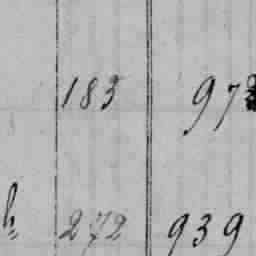 183 973
h 272 939